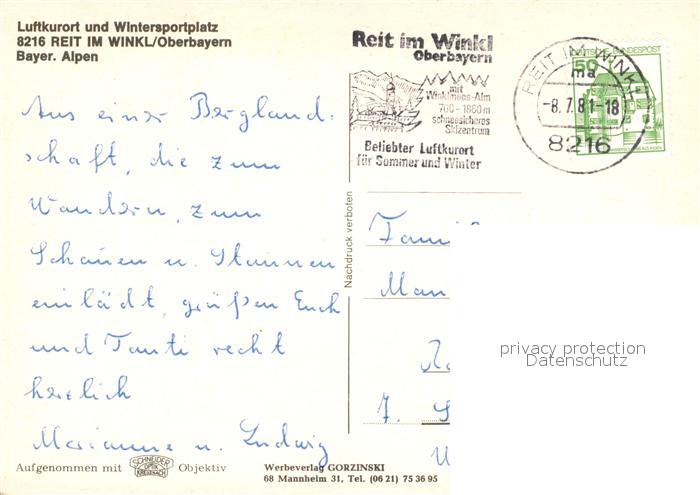 Luftkurort und Wintersportplatz
8216 REIT IM WINKL/Oberbayern
Bayer. Alpen
Reit im Winkl
Oberbayern
mit
Winklmoos-Alm
700 - 1860 m
schneesicheres
Skizentrum
Beliebter Luftkurort
für Sommer und Winter
REIT IM WINKL
ma
-8.7.81-18
8216
DEUTSCHE BUNDESPOST
50
Aus einer Bergland-
schaft, die zum
Wandern, zum
Schauen u. Staunen
einlädt, grüßen Euch
und Tanti recht
herzlich
Marianne u. Ludwig
Nachdruck verboten
Fami
Man
7. S
privacy protection
Datenschutz
Aufgenommen mit SCHNEIDER OPTIK KREUZNACH Objektiv
Werbeverlag GORZINSKI
68 Mannheim 31, Tel. (06 21) 75 36 95